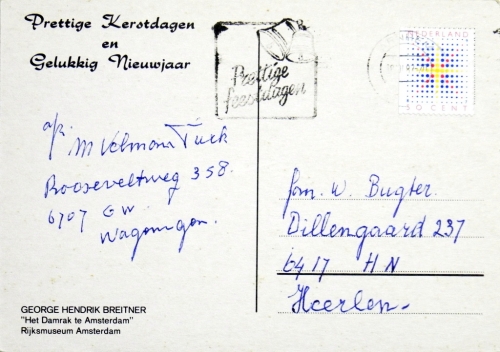 Prettige Kerstdagen
en
Gelukkig Nieuwjaar
Prettige
feestdagen
NEDERLAND
50 CENT
afz. M Velmans Türk
Rooseveltweg 358.
6707 GW
Wageningen.
fam. W. Bugter.
Dillengaard 237
6417 HN
Heerlen-
GEORGE HENDRIK BREITNER
"Het Damrak te Amsterdam"
Rijksmuseum Amsterdam